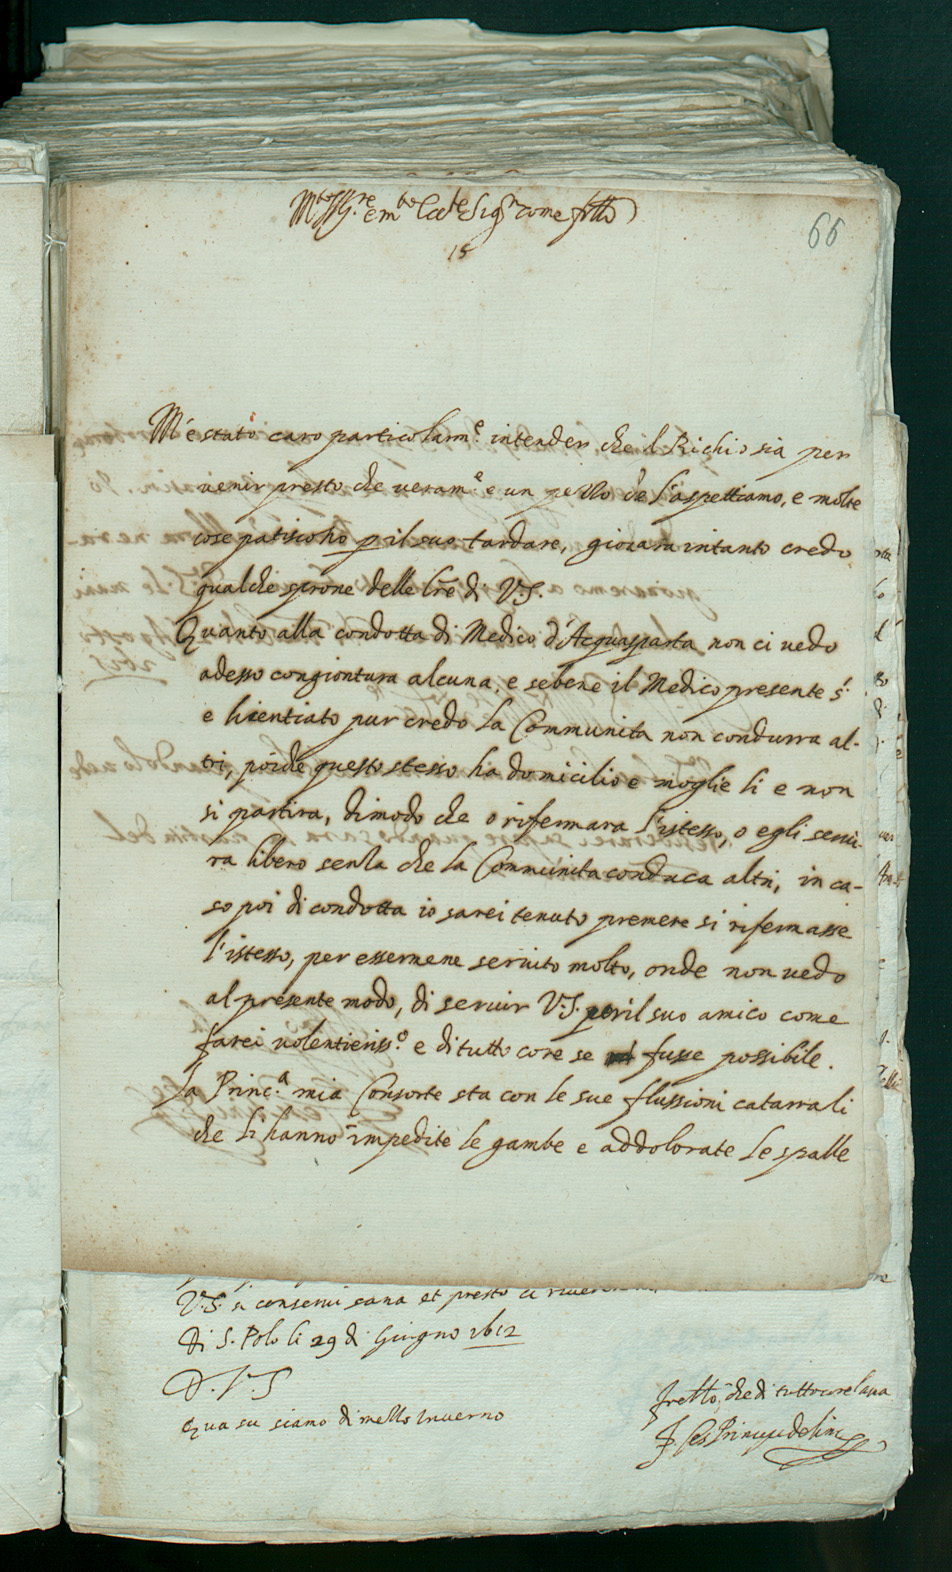 M.to Ill.re e m.to Ecc.te Sig.r come fr.llo
66
15
M'è stato caro particolarm.e intender che il Richio sia per
venir presto che veram.e e un pezzo che l'aspettiamo, e molte
cose patiscono p il suo tardare, giovara intanto credo
qualche sprone delle lre di V.S.
Quanto alla condotta di Medico d'Acquasparta non ci vedo
adesso congiontura alcuna, e sebene il Medico presente s'
e licentiato pur credo la Communita non condurra al-
tri, poiche questo stesso ha domicilio e moglie li e non
si partira, dimodo che o rifermara l'istesso, o egli servi-
ra libero senza che la Communita conduca altri, in ca-
so poi di condotta io sarei tenuto premere si rifermasse
l'istesso, per essermene servito molto, onde non vedo
al presente modo, di servir V.S. per il suo amico come
farei volentieriss.o e di tutto core se fusse possibile.
La Princ.a mia Consorte sta con le sue flussioni catarrali
che li hanno impedite le gambe e addolorate le spalle
V.S. si conservi sana et presto ci
Di S. Polo li 29 di Giugno 1612
D. V. S
Qua su siamo di mezzo Inverno
fratello che di tutto core l'ama
F. Ces Principe de Lincei